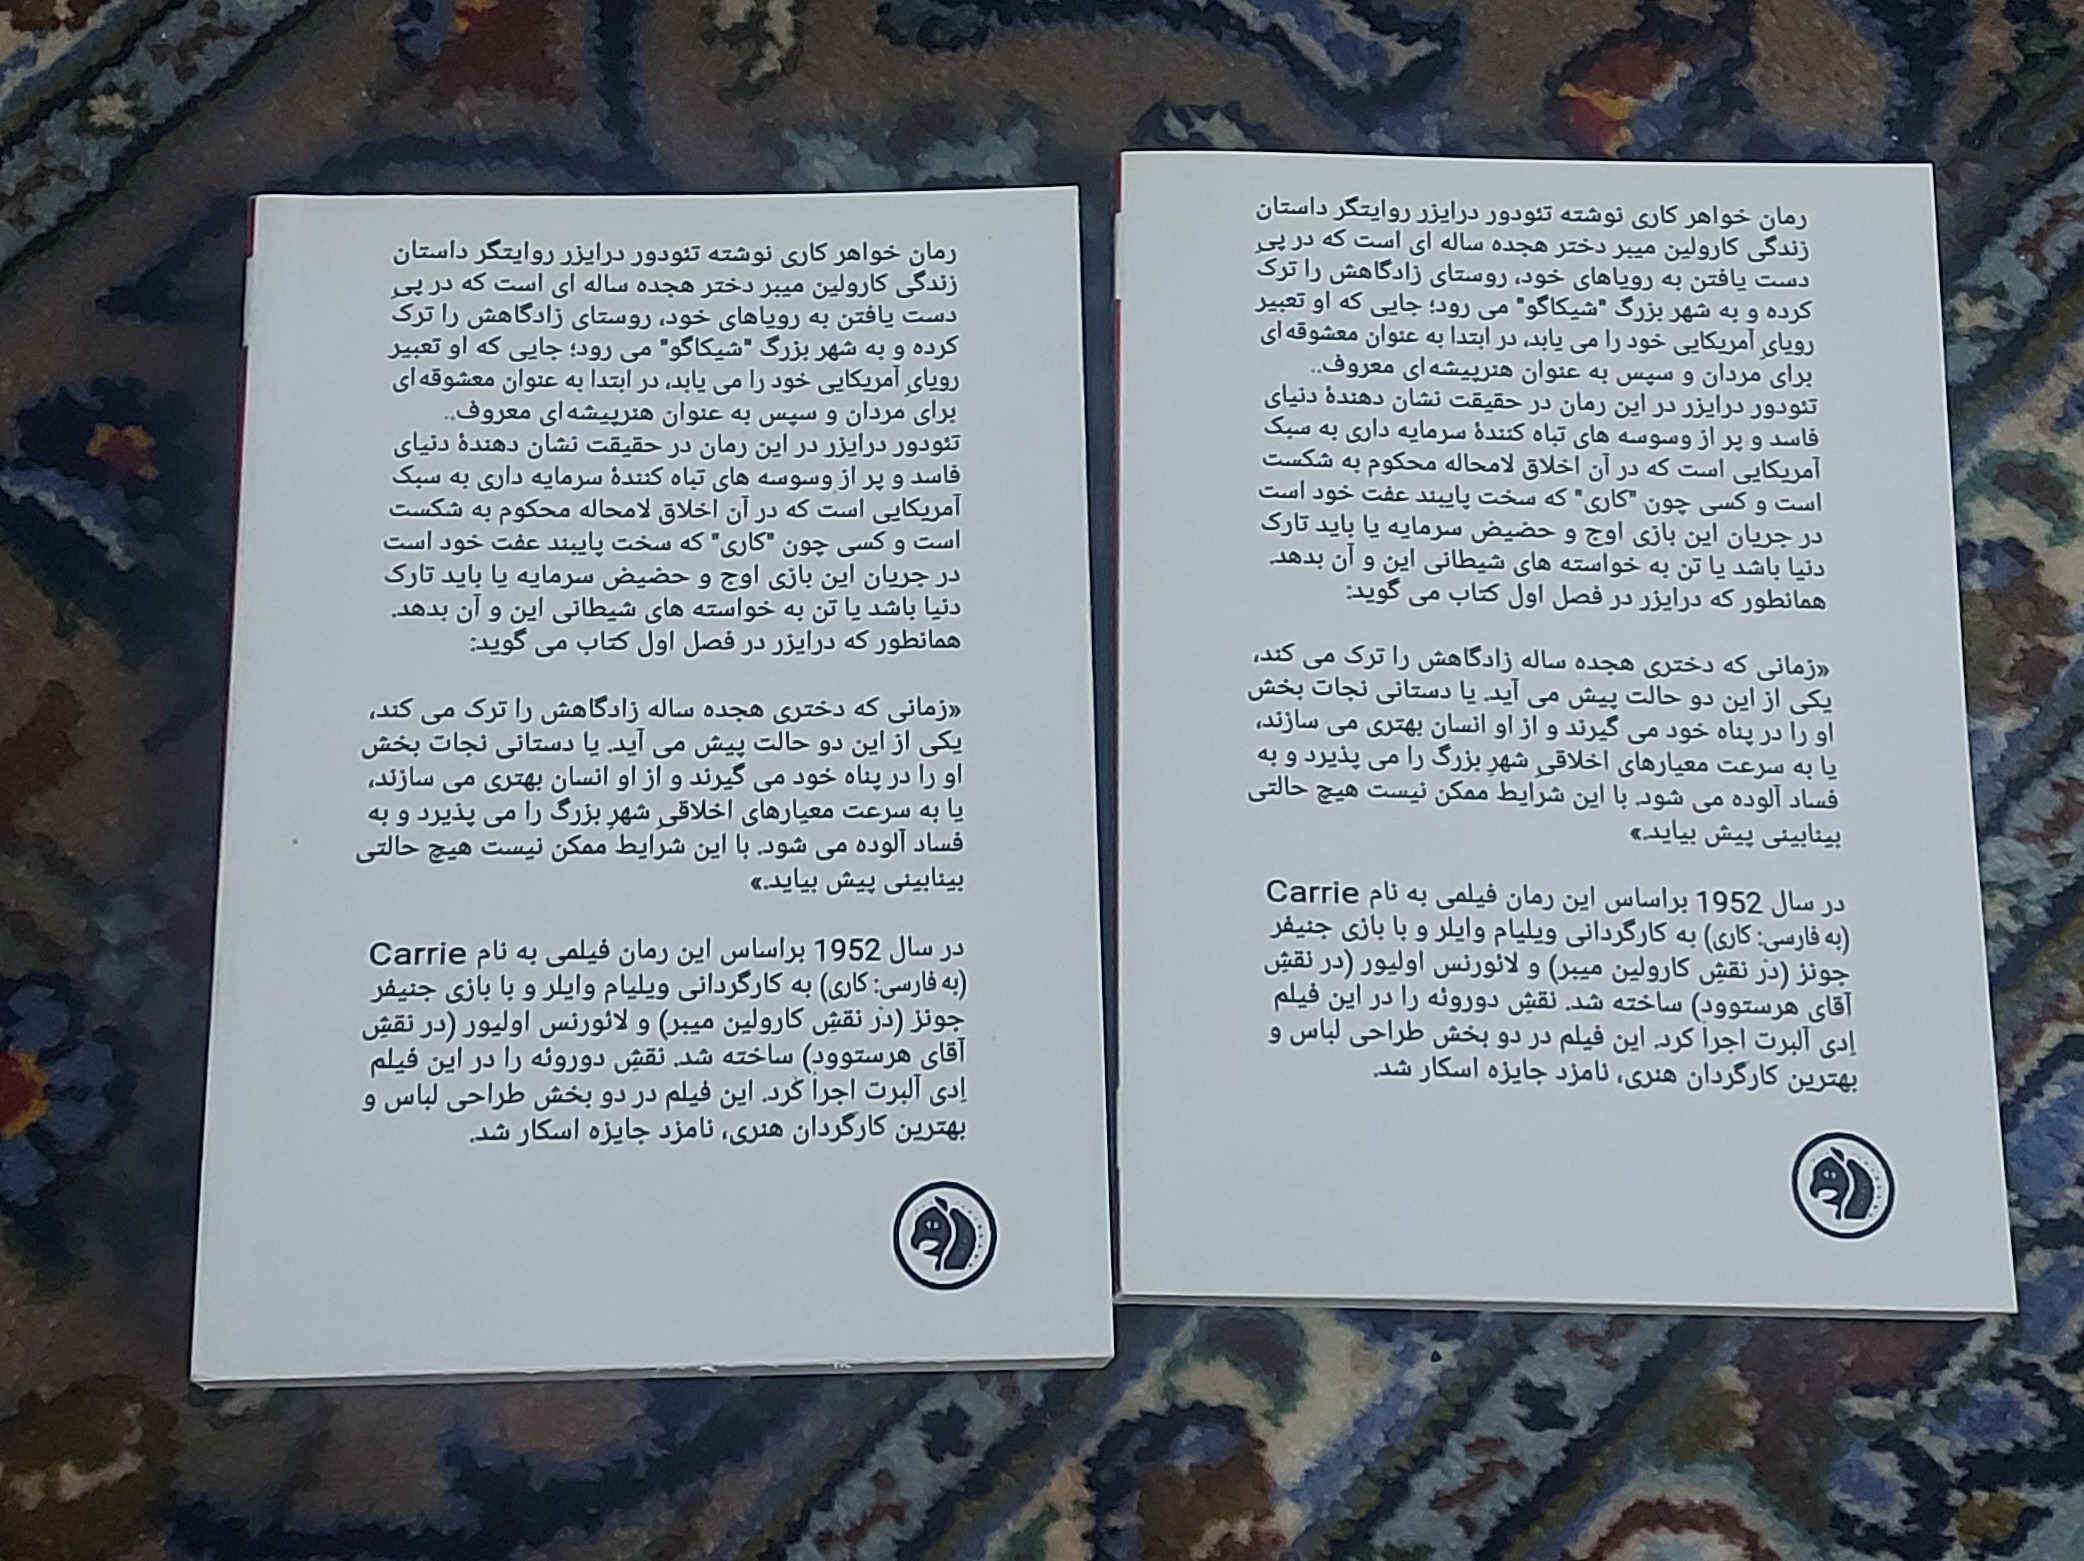 رمان خواهر کاری نوشته تئودور درایزر روایتگر داستان
زندگی کارولین میبر دختر هجده ساله ای است که در پیِ
دست یافتن به رویاهای خود، روستای زادگاهش را ترک
کرده و به شهر بزرگ "شیکاگو" می رود؛ جایی که او تعبیر
رویایِ آمریکایی خود را می یابد، در ابتدا به عنوان معشوقه‌ای
برای مردان و سپس به عنوان هنرپیشه‌ای معروف..
تئودور درایزر در این رمان در حقیقت نشان دهندۀ دنیای
فاسد و پر از وسوسه های تباه کنندۀ سرمایه داری به سبک
آمریکایی است که در آن اخلاق لامحاله محکوم به شکست
است و کسی چون "کاری" که سخت پایبند عفت خود است
در جریان این بازی اوج و حضیض سرمایه یا باید تارک
دنیا باشد یا تن به خواسته های شیطانی این و آن بدهد.
همانطور که درایزر در فصل اول کتاب می گوید:
«زمانی که دختری هجده ساله زادگاهش را ترک می کند،
یکی از این دو حالت پیش می آید. یا دستانی نجات بخش
او را در پناه خود می گیرند و از او انسان بهتری می سازند،
یا به سرعت معیارهای اخلاقیِ شهرِ بزرگ را می پذیرد و به
فساد آلوده می شود. با این شرایط ممکن نیست هیچ حالتی
بینابینی پیش بیاید.»
در سال 1952 براساس این رمان فیلمی به نام Carrie
(به فارسی: کاری) به کارگردانی ویلیام وایلر و با بازی جنیفر
جونز (در نقشِ کارولین میبر) و لائورنس اولیور (در نقشِ
آقای هرستوود) ساخته شد. نقشِ دوروئه را در این فیلم
اِدی آلبرت اجرا کرد. این فیلم در دو بخش طراحی لباس و
بهترین کارگردان هنری، نامزد جایزه اسکار شد.
رمان خواهر کاری نوشته تئودور درایزر روایتگر داستان
زندگی کارولین میبر دختر هجده ساله ای است که در پیِ
دست یافتن به رویاهای خود، روستای زادگاهش را ترک
کرده و به شهر بزرگ "شیکاگو" می رود؛ جایی که او تعبیر
رویایِ آمریکایی خود را می یابد، در ابتدا به عنوان معشوقه‌ای
برای مردان و سپس به عنوان هنرپیشه‌ای معروف..
تئودور درایزر در این رمان در حقیقت نشان دهندۀ دنیای
فاسد و پر از وسوسه های تباه کنندۀ سرمایه داری به سبک
آمریکایی است که در آن اخلاق لامحاله محکوم به شکست
است و کسی چون "کاری" که سخت پایبند عفت خود است
در جریان این بازی اوج و حضیض سرمایه یا باید تارک
دنیا باشد یا تن به خواسته های شیطانی این و آن بدهد.
همانطور که درایزر در فصل اول کتاب می گوید:
«زمانی که دختری هجده ساله زادگاهش را ترک می کند،
یکی از این دو حالت پیش می آید. یا دستانی نجات بخش
او را در پناه خود می گیرند و از او انسان بهتری می سازند،
یا به سرعت معیارهای اخلاقیِ شهرِ بزرگ را می پذیرد و به
فساد آلوده می شود. با این شرایط ممکن نیست هیچ حالتی
بینابینی پیش بیاید.»
در سال 1952 براساس این رمان فیلمی به نام Carrie
(به فارسی: کاری) به کارگردانی ویلیام وایلر و با بازی جنیفر
جونز (در نقشِ کارولین میبر) و لائورنس اولیور (در نقشِ
آقای هرستوود) ساخته شد. نقشِ دوروئه را در این فیلم
اِدی آلبرت اجرا کرد. این فیلم در دو بخش طراحی لباس و
بهترین کارگردان هنری، نامزد جایزه اسکار شد.